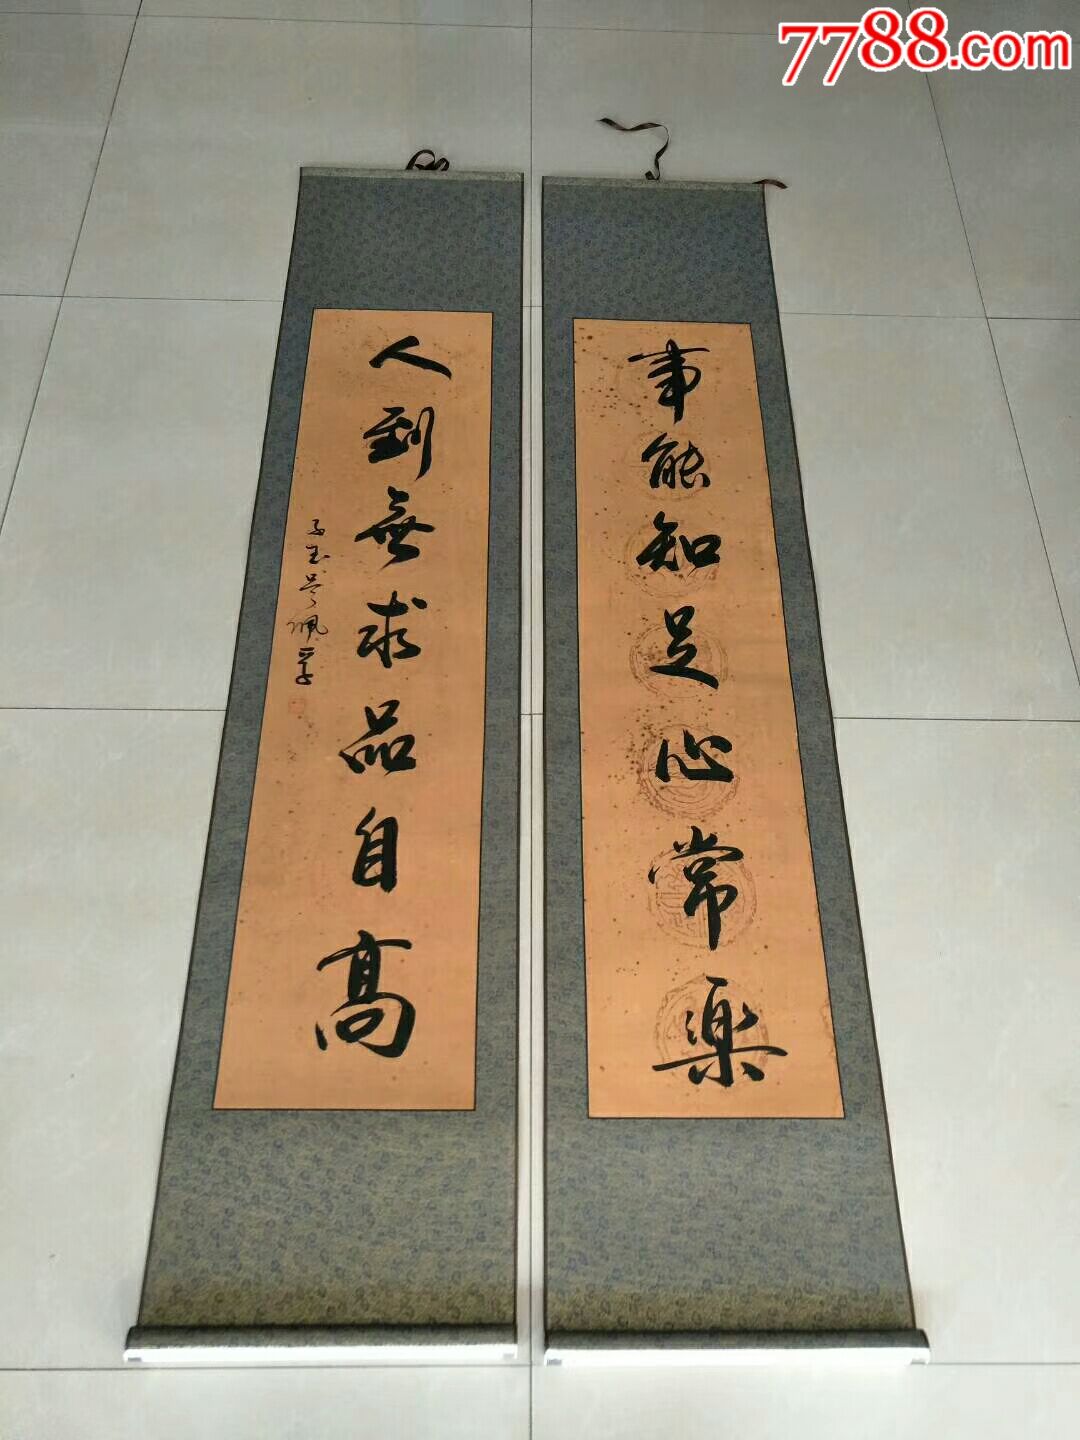 7788.com
事能知足心常樂
人到無求品自高
子玉吳佩孚